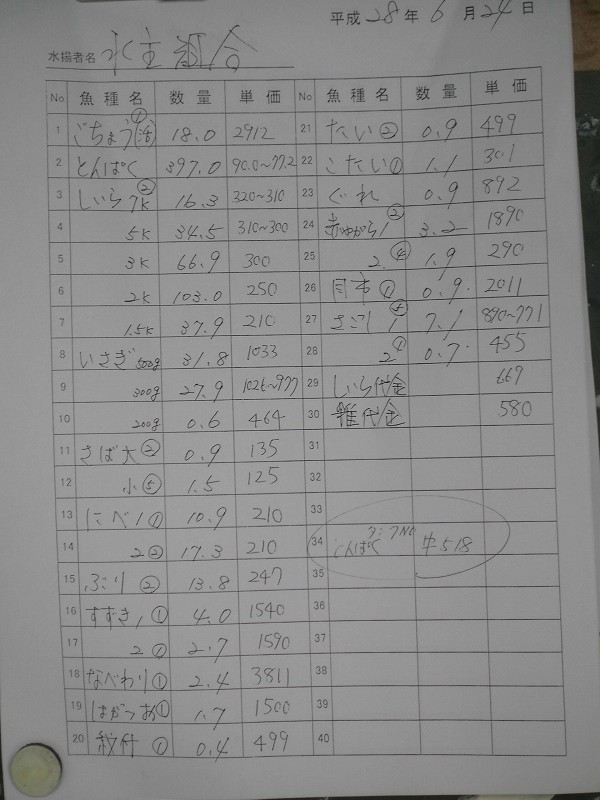 平成 28 年 6 月 24 日
水揚者名 水主組合
No 魚種名 数量 単価 No 魚種名 数量 単価
1 ごちょう①(活) 18.0 2912 21 たい② 0.9 499
2 とんぱく 397.0 90.0~77.2 22 こたい① 1.1 301
3 しいら7K② 16.3 320~310 23 ぐれ 0.9 892
4 5K 34.5 310~300 24 赤やがら1② 3.2 1890
5 3K 66.9 300 25 2④ 1.9 290
6 2K 103.0 250 26 ① 0.9 2011
7 1.5K 37.9 210 27 さごし1 7.1 890~771
8 いさぎ500g 31.8 1033 28 2① 0.7 455
9 300g 27.9 1026~977 29 しいら代金 669
10 200g 0.6 464 30 雑代金 580
11 さば大② 0.9 135 31
12 小⑤ 1.5 125 32
13 にべ1① 10.9 210 33
14 2② 17.3 210 34 とんぱく タンクNo 中518
15 ぶり② 13.8 247 35
16 すずき1① 4.0 1540 36
17 2① 2.7 1590 37
18 なべわり① 2.4 3811 38
19 はがつお① 1.7 1500 39
20 紋付① 0.4 499 40